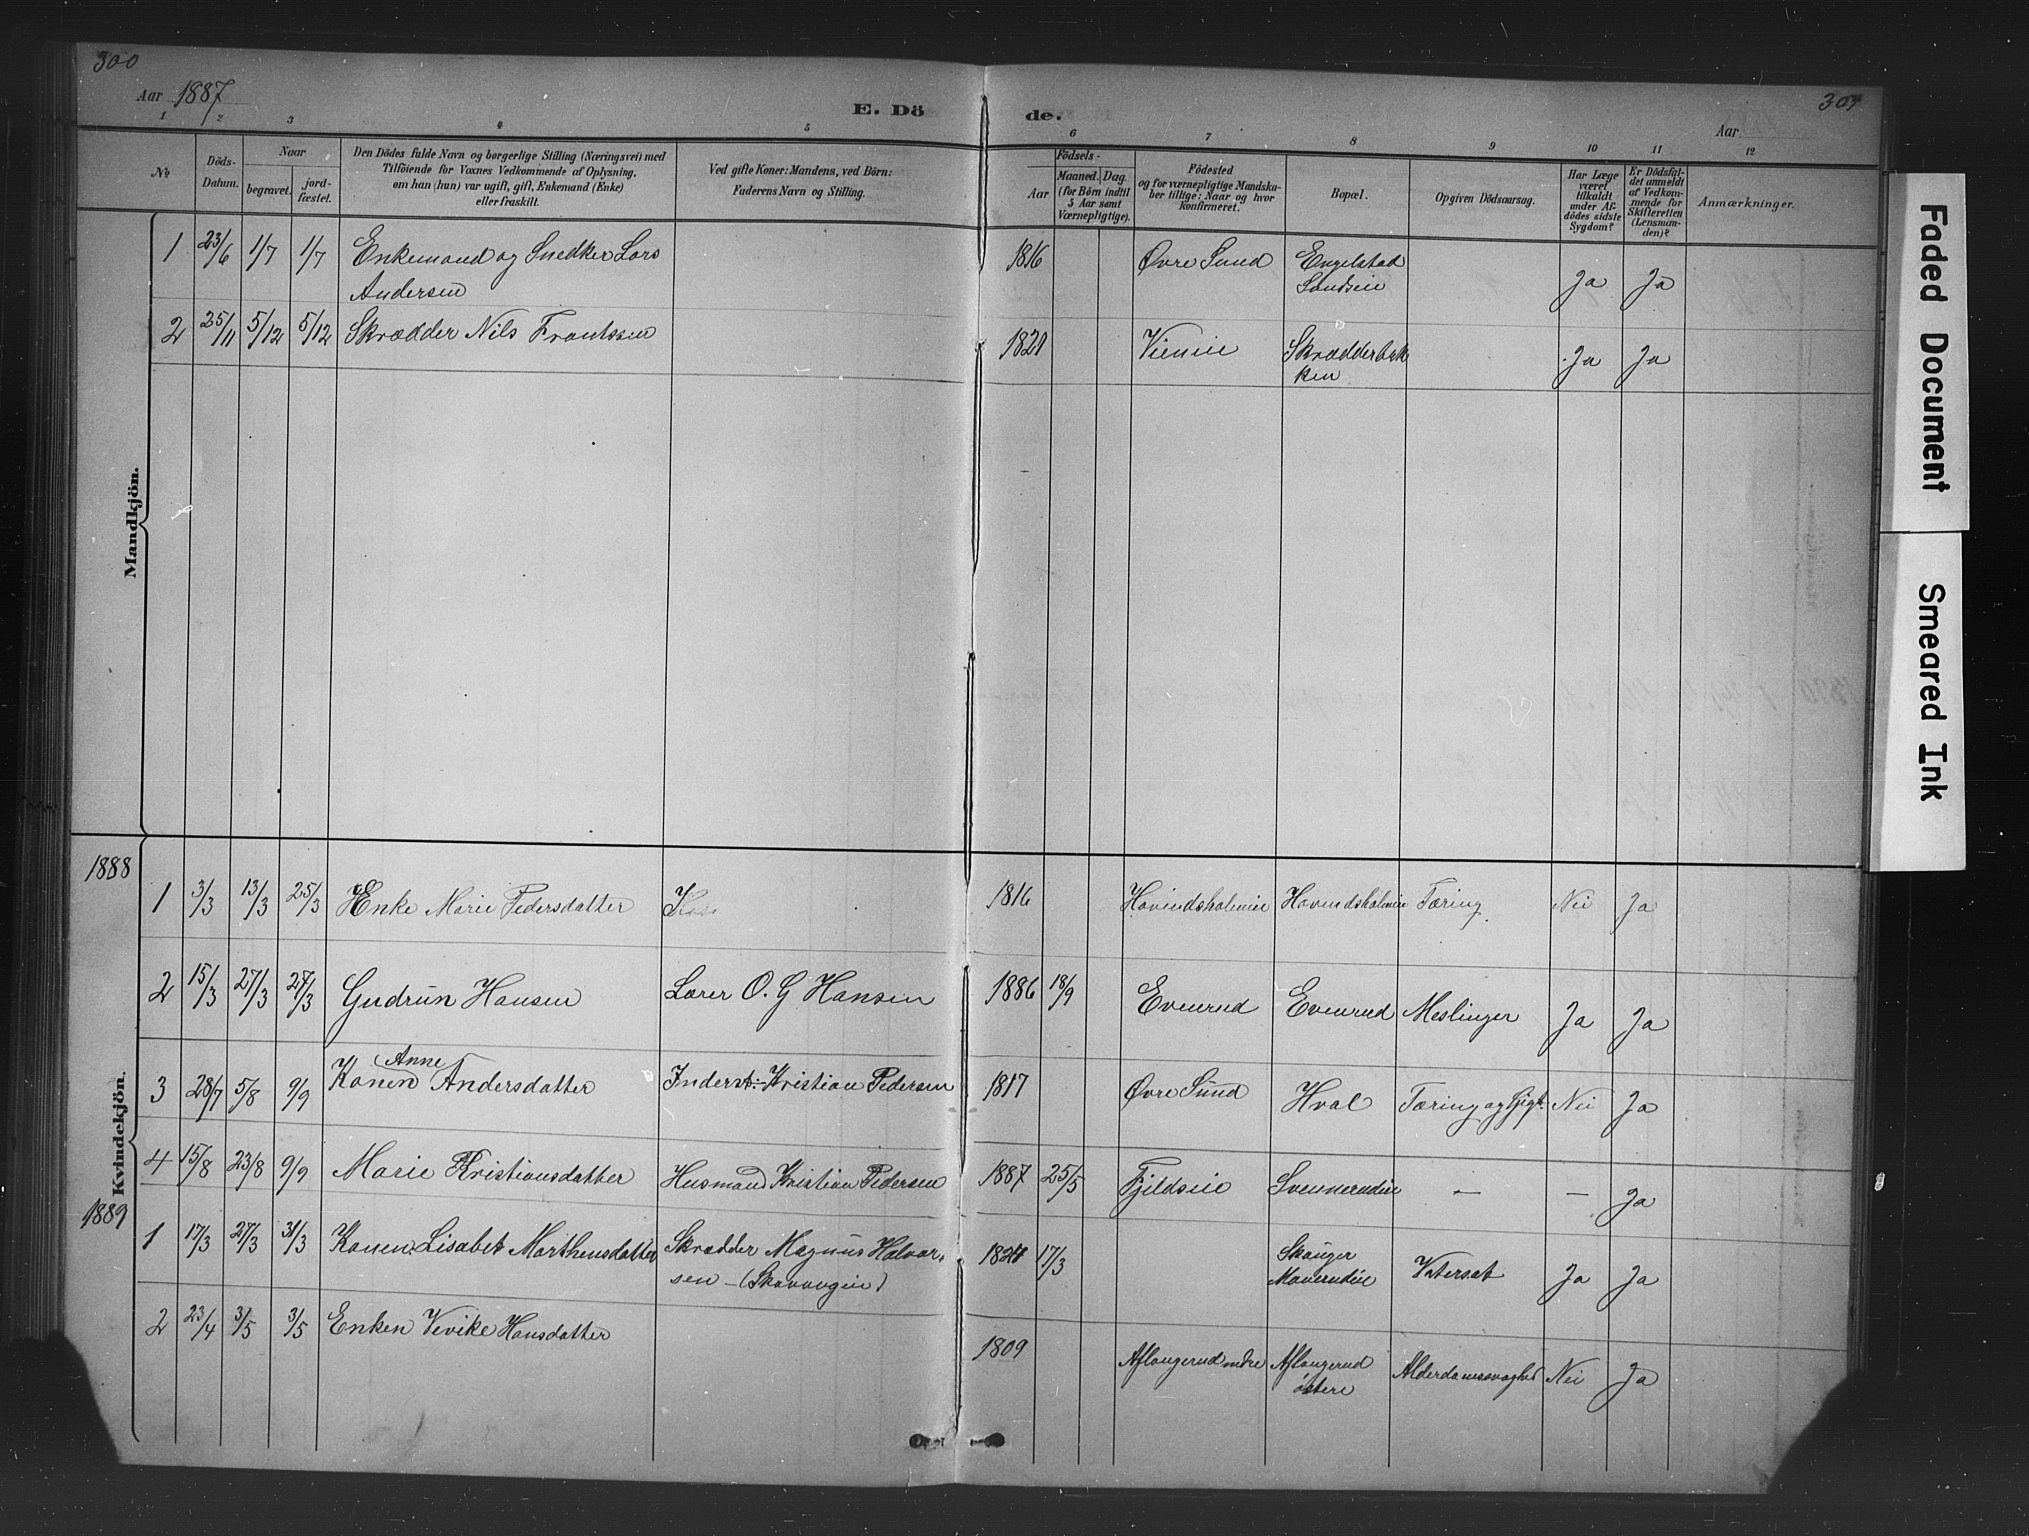 300
301
Aar 1887
E. Dö
de.
Aar
1 2 3 4 5 6 7 8 9 10 11 12
No
Döds-
Datum.
Naar
begravet.
jord-
fæstet.
Den Dödes fulde Navn og borgerlige Stilling (Næringsvei) med
Tilföiende for Voxnes Vedkommende af Oplysning,
om han (hun) var ugift, gift, Enkemand (Enke)
eller fraskilt.
Ved gifte Koner: Mandens, ved Börn:
Faderens Navn og Stilling.
Födsels-
Aar
Maaned. Dag.
(for Börn indtil
5 Aar samt
Værnepligtige).
Födested
og for værnepligtige Mandska-
ber tillige: Naar og hvor
konfirmeret.
Bopæl.
Opgiven Dödsaarsag.
Har Læge
været
tilkaldt
under Af-
dödes sidste
Sygdom?
Er Dödsfal-
det anmeldt
af Vedkom-
mende for
Skifteretten
(Lensman-
den)?
Anmærkninger.
Mandkjön.
1 23/6 1/7 1/7 Enkemand og Snedker Lars 1816 Øvre Sund Engelstad
Andersen Sandsein Ja Ja
2 25/11 5/12 5/12 Skrædder Nils Frantssen 1821 Vieneie Skrædderbak
ken Ja Ja
Kvindekjön.
1888
1 3/3 13/3 25/3 Enke Marie Pedersdatter 1816 Hovindsholmeie Hovindsholmeie Tæring Nei Ja
2 15/3 27/3 27/3 Gudrun Hansen Lærer O. G Hansen 1886 18/9 Evenrud Evenrud Meslinger Ja Ja
Anne
3 28/7 5/8 9/9 Konen Andersdatter Inderst: Kristian Pedersen 1817 Øvre Sund Hval Tæring og Gigt. Nei Ja
4 15/8 23/8 9/9 Marie Kristiansdatter Husmand Kristian Pedersen 1887 25/5 Fjeldseie Svennerudeie — — Ja
1889
1 17/3 27/3 31/3 Konen Lisabet Marthensdatter Skrædder Magnus Halvor- 17/3 Skauger
sen – (Skavangeie) Maurudeie Vatersot Ja Ja
2 23/4 3/5 3/5 Enken Vevike Hansdatter 1809 Aflangerud nedre Aflangerud
østere Alderdomssvaghed Nei Ja
Faded Document
Smeared Ink